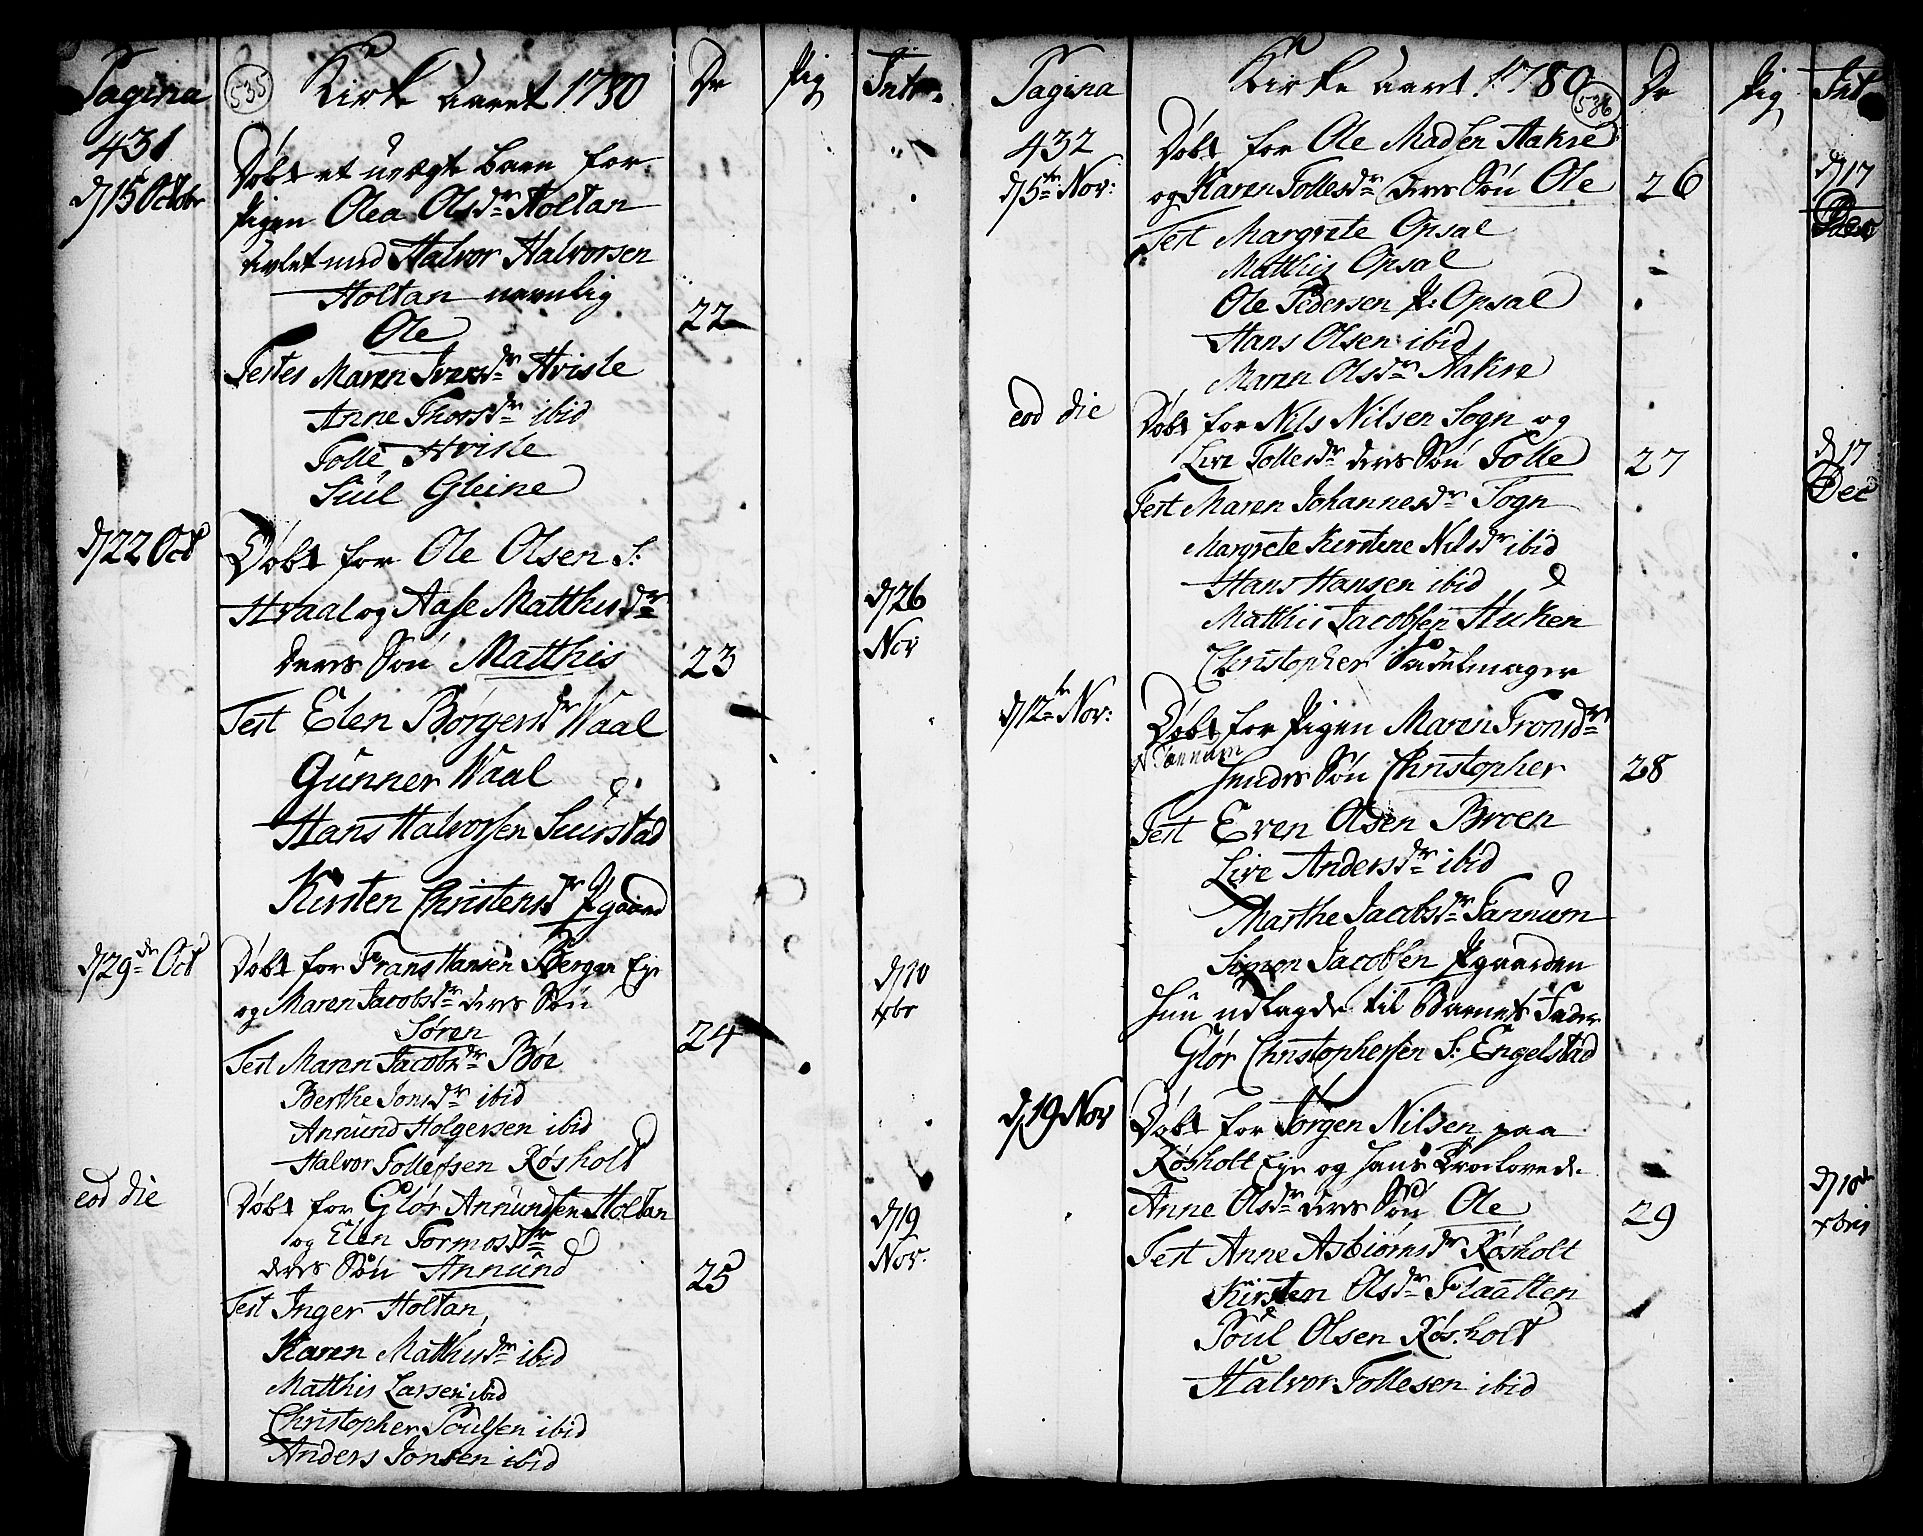 Pagina
431
535
Kirke Aaret 1780
Dr
Pig
Intr.
d 15 Octobr
Døbt et uægte barn for
Pigen Olea Olsdr Holtan
avlet med Halvor Halvorsen
Holtan nemlig
Ole
22
Testes Maren Iversdr Hvisle
Anne Thorsdr ibid
Tolle Hvisle
Juul Gleine
d 22 Oct
Døbt for Ole Olsen S:
Hvaal og Aase Matthisdr
deres Søn Matthis
23
d 26
Nov
Test Elen Børgersdr Waal
Gunner Waal
Hans Halvorsen Suurstad
Kirsten Christensdr Pgaard
d 29de Oct
Døbt for Frans Hansen Berger Eje
og Maren Jacobsdr deres Søn
Søren
24
d 10
xbr
Test Maren Jacobsdr Bøe
Berthe Jonsdr ibid
Annund Holgersen ibid
Halvor Tollefsen Røsholt
eod die
Døbt for Gloer Annundsen Holtan
og Elen Tormosdr
deres Søn Annund
25
d 19
Nov.
Test Inger Holtan,
Karen Matthisdr ibid
Matthis Larsen ibid
Christopher Poulsen ibid
Anders Jonsen ibid
Pagina
432
Kirke Aaret 1780
536
Dr
Pig
Int
d 5te Nov:
Døbt for Ole Madsen Aakre
og Karen Tollesdr deres Søn Ole
26
d 17
Dec
Test Margrete Opsal
Matthis Opsal
Ole Pedersen P: Opsal
Hans Olsen ibid
Maren Olsdr Aakre
eod die
Døbt for Nils Nilsen Sogn og
Live Tollesdr deres Søn Tolle
27
d 17
Dec
Test Maren Johannesdr Sogn
Margrete Kirstene Nilsdr ibid
Hans Hansen ibid
Matthis Jacobsen Stuken
Christopher Sadelmager
d 12te Nov:
Døbt for Pigen Maren Tronsdr
N Tannum
hendes Søn Christopher
28
Test Even Olsen Broen
Live Andersdr ibid
Marthe Jacobsdr Tannum
Simon Jacobsen Pgaarden
Hun udlagde til Barnets Fader
Gloer Christophersen S: Engelstad
d 19 Nov
Døbt for Jørgen Nilsen paa
Røsholt Eje og hans Troelovede
Anne Olsdr deres Søn Ole
29
d 10de
xbris
Test Anne Asbiørnsdr Røsholt
Kirsten Olsdr Flaatten
Poul Olsen Røsholt
Halvor Tollesen ibid